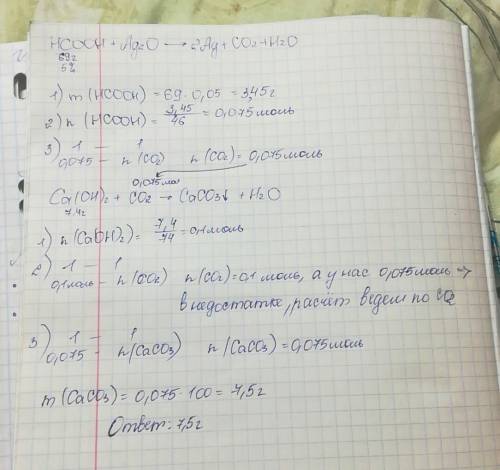 HCOOH + Ag2O → 2Ag + CO2 + H2O
69г
5%
1) m (HCOOH) = 69 · 0,05 = 3,45г
2) n (HCOOH) = 3,45/46 = 0,075 моль
3) 1 — 1
0,075 — n (CO2) n(CO2) = 0,075 моль
0,075 мол
Ca(OH)2 + CO2 → CaCO3↓ + H2O
7,4г
1) n(Ca(OH)2) = 7,4/74 = 0,1 моль
2) 1 — 1
0,1 моль — n(CO2) n(CO2) = 0,1 моль, а у нас 0,075 моль →
в недостатке, расчёт ведем по CO2
3) 1 — 1
0,075 — n(CaCO3) n(CaCO3) = 0,075 моль
m (CaCO3) = 0,075 · 100 = 7,5г
Ответ: 7,5г